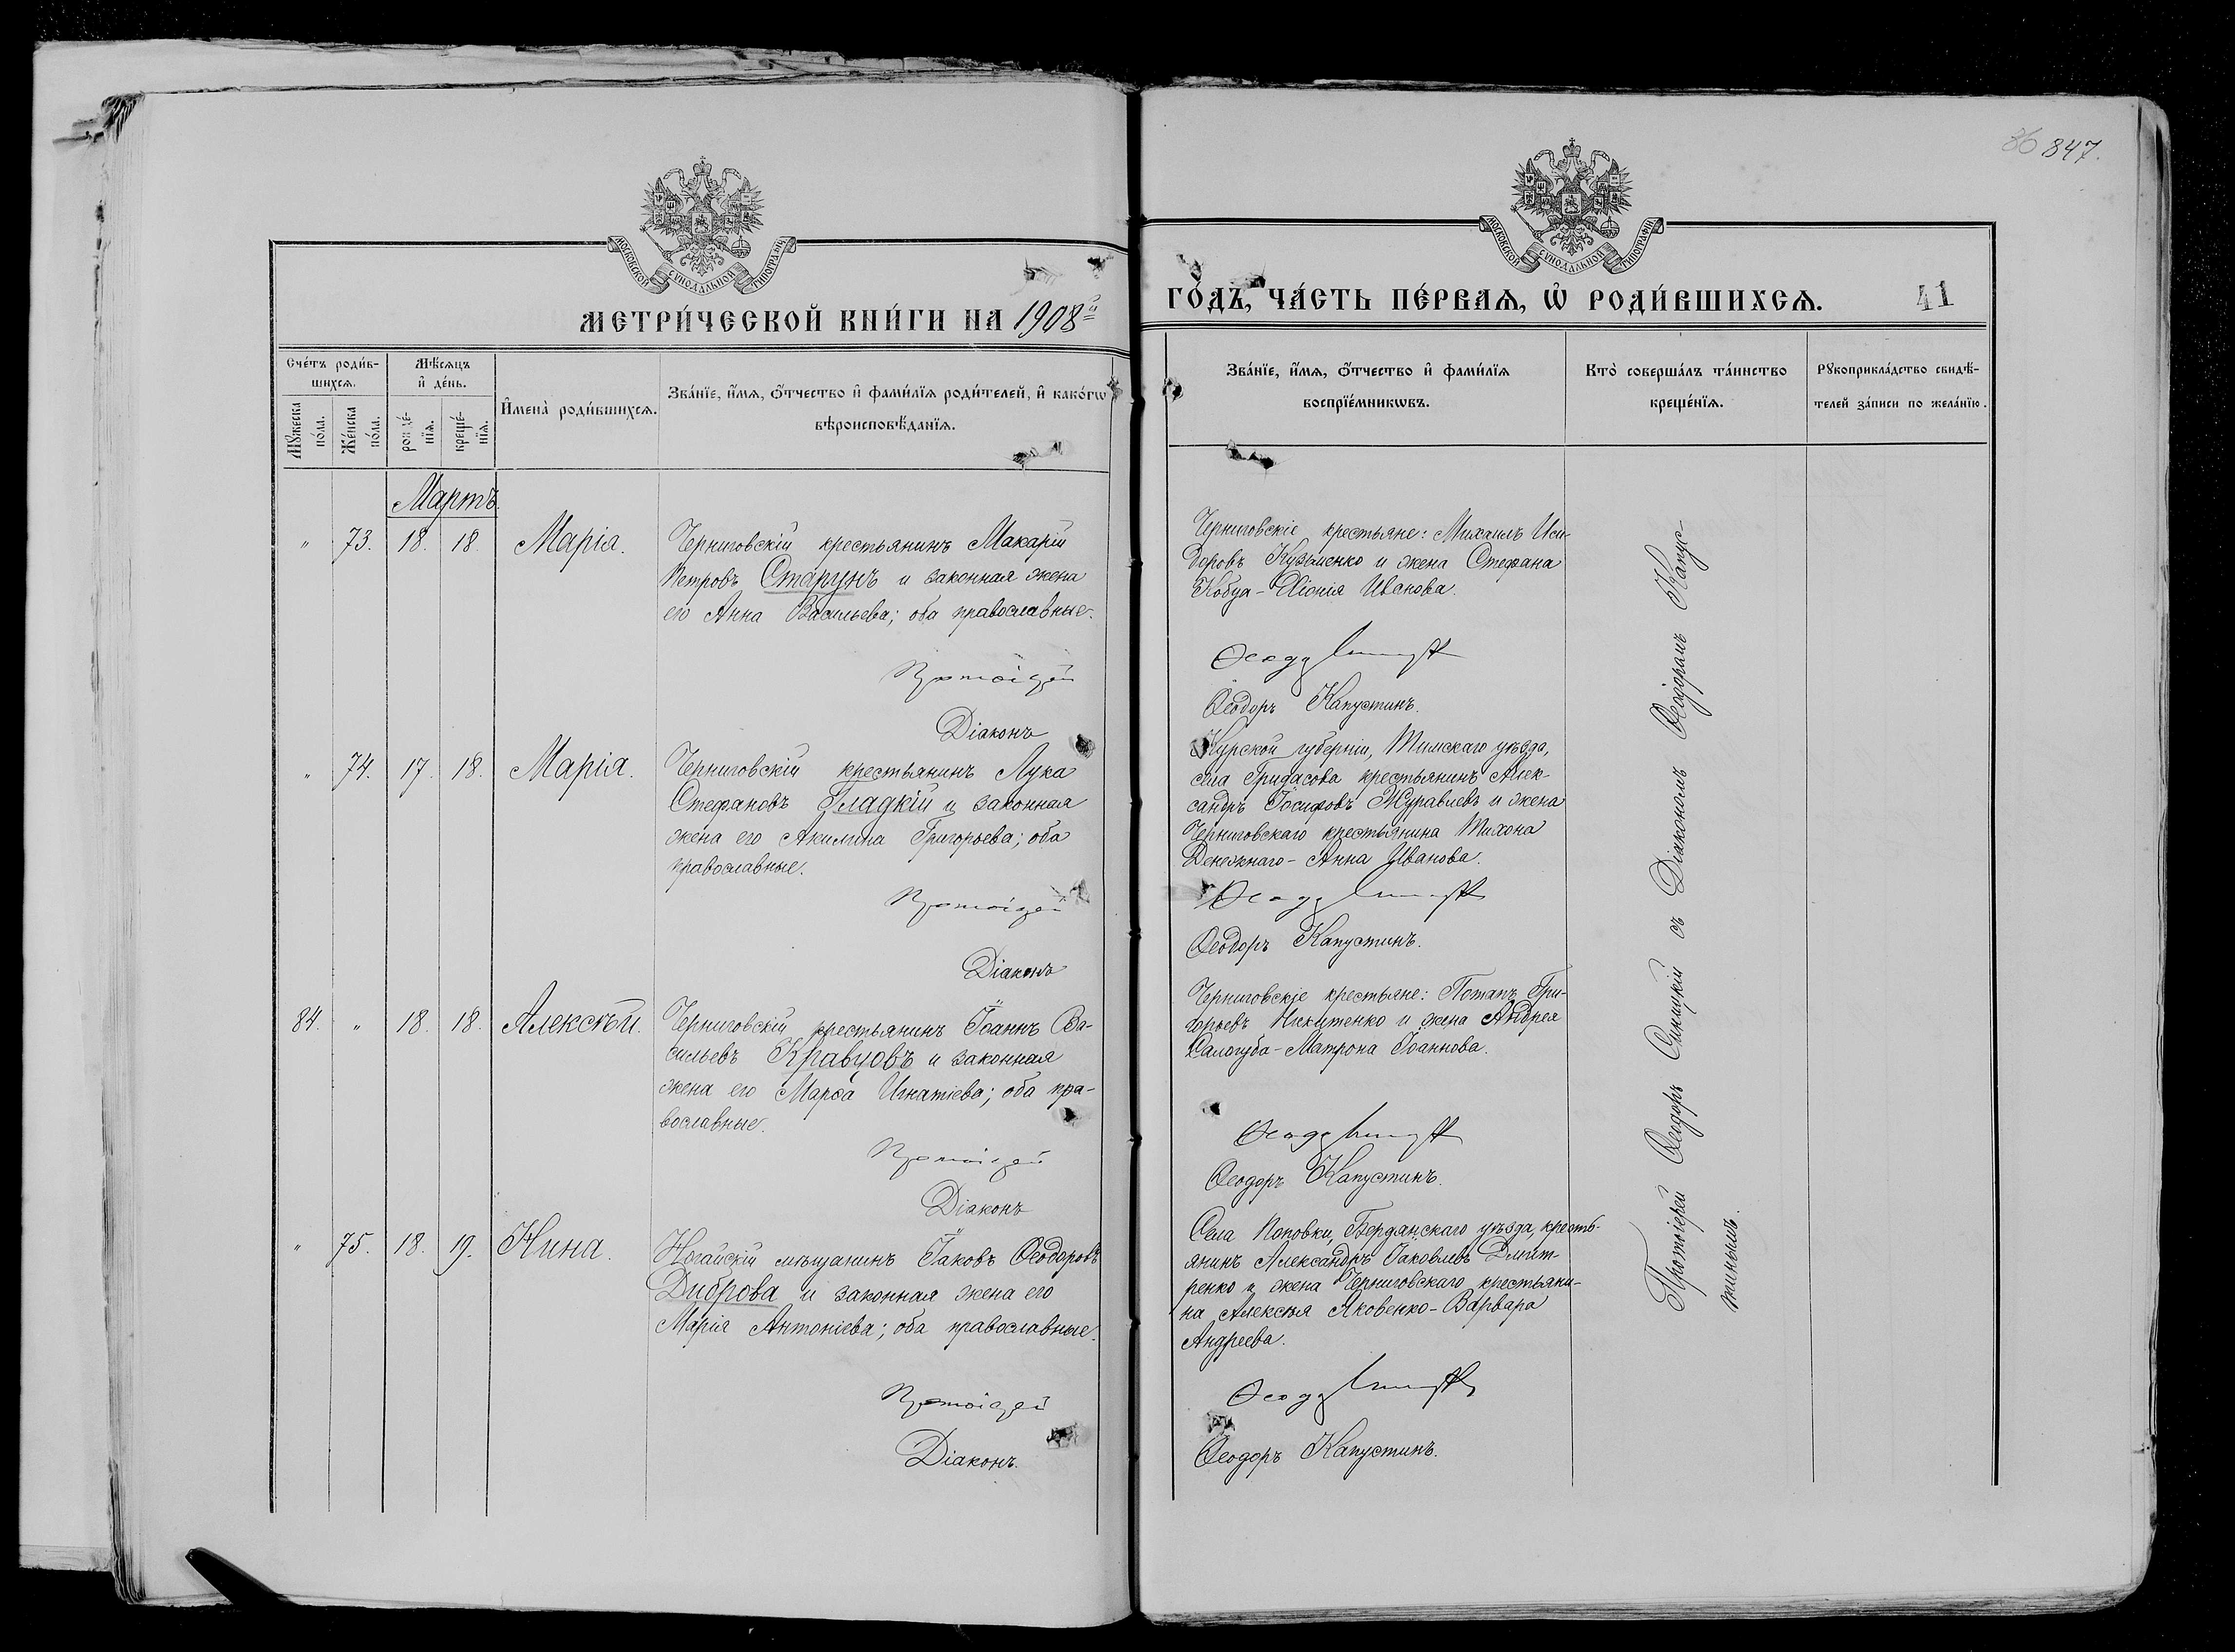 86 847.
МОСКОВСКОЙ СѴНОДАЛЬНОЙ ТИПОГРАФІИ
МОСКОВСКОЙ СѴНОДАЛЬНОЙ ТИПОГРАФІИ
МЕТРИ́ЧЕСКОЙ КНИ́ГИ НА 1908й
ГО́ДЪ, ЧА́СТЬ ПЕ́РВАѦ, Ѡ҆ РОДИ́ВШИХСѦ. 41
Сче́тъ роди́в-
шихсѧ.
Мꙋ́жеска по́ла.
Же́нска по́ла.
Мѣ́сѧцъ
и҆ де́нь.
рожде́-
нїѧ.
креще́-
нїѧ.
И҆мена̀ роди́вшихсѧ.
Зва́нїе, и҆́мѧ, ѻ҆́тчество и҆ фами́лїѧ роди́телей, и҆ како́гѡ
вѣроисповѣ́данїѧ.
Зва́нїе, и҆́мѧ, ѻ҆́тчество и҆ фами́лїѧ
воспрїе́мникѡвъ.
Кто̀ соверша́лъ та́инство
креще́нїѧ.
Рꙋкоприкла́дство свидѣ́-
телей за́писи по жела́нїю.
Мартъ.
" 73. 18. 18. Марія.
Черниговскій крестьянинъ Макарій
Петровъ Старунъ и законная жена
его Анна Васильева; оба православные.
Протоіерей
Діаконъ
Черниговскіе крестьяне: Михаилъ Иси-
доровъ Кузьменко и жена Стефана
Кобца - Хіонія Иванова.
Ѳеодоръ
Ѳеодоръ Капустинъ.
" 74. 17. 18. Марія.
Черниговскій крестьянинъ Лука
Стефановъ Гладкій и законная
жена его Акилина Григорьева; оба
православные.
Протоіерей
Діаконъ
Курской губерніи, Тимскаго уѣзда,
села Гридасова крестьянинъ Алек-
сандръ Іосифовъ Журавлевъ и жена
Черниговскаго крестьянина Тихона
Денежнаго - Анна Иванова.
Ѳеодоръ
Ѳеодоръ Капустинъ.
84. " 18. 18. Алексѣй.
Черниговскій крестьянинъ Іоаннъ Ва-
сильевъ Кравцовъ и законная
жена его Марѳа Игнатіева; оба пра-
вославные.
Протоіерей
Діаконъ
Черниговскіе крестьяне: Потапъ Гри-
горьевъ Никитенко и жена Андрея
Салогуба - Матрона Іоаннова.
Ѳеодоръ
Ѳеодоръ Капустинъ.
" 75. 18. 19. Нина.
Ногайскій мѣщанинъ Іаковъ Ѳеодоровъ
Диброва и законная жена его
Марія Антоніева; оба православные.
Протоіерей
Діаконъ.
Села Поповки, Бердянскаго уѣзда, кресть-
янинъ Александръ Іаковлевъ Дмит-
ренко и жена Черниговскаго крестьяни-
на Алексѣя Яковенко - Варвара
Андреева.
Ѳеодоръ
Ѳеодоръ Капустинъ.
Протоіерей Ѳеодоръ Синицкій съ Діакономъ Ѳеодоромъ Капус-
тинымъ.